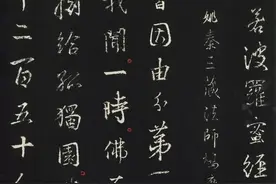 若波羅蜜經
姚秦三藏法師鳩
會因由分第一
我聞一時佛
樹給孤獨園
二百五十人